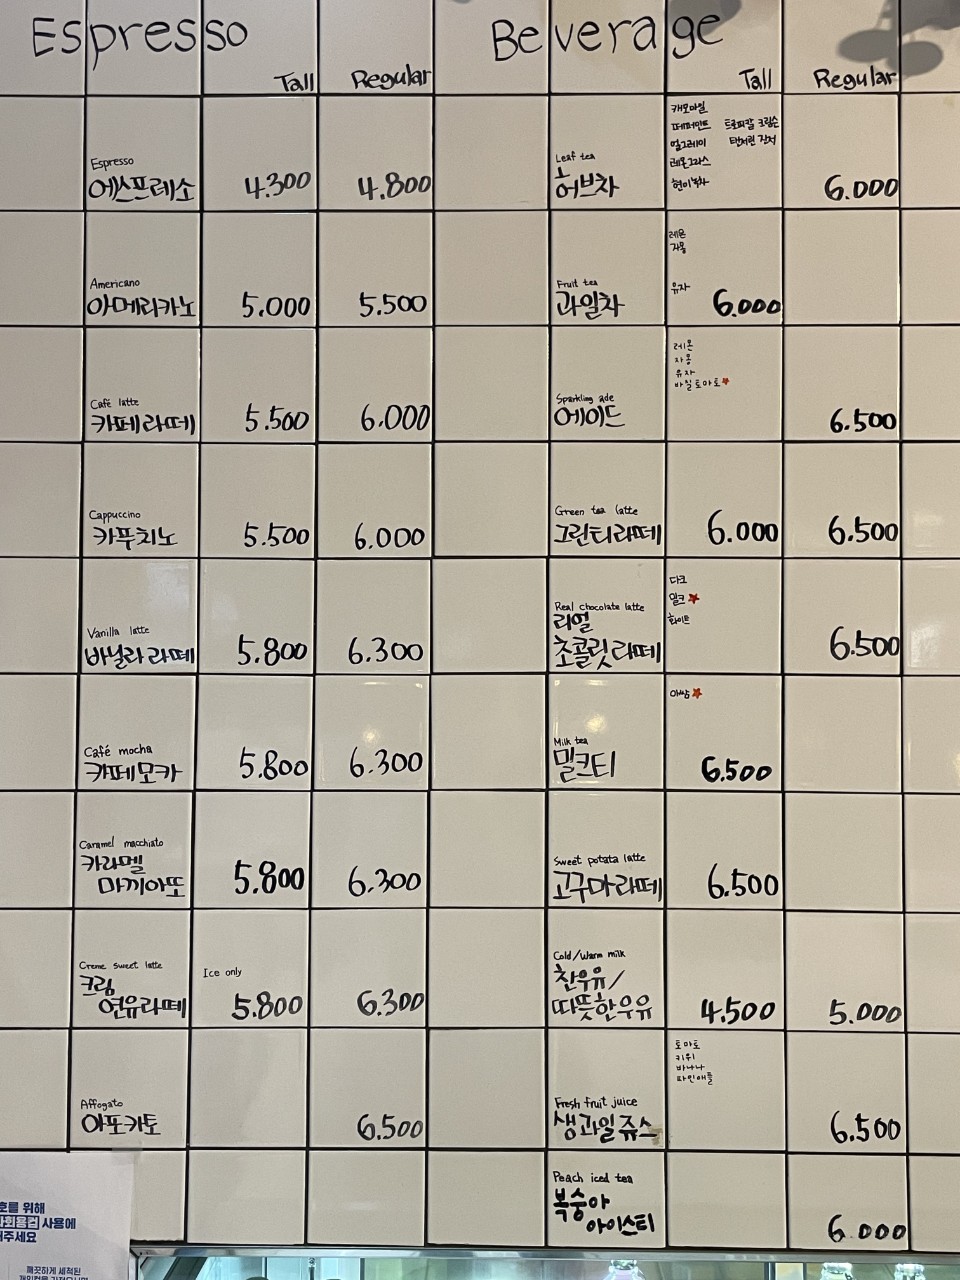 Espresso
Tall Regular
Espresso
에스프레소 4.300 4.800
Americano
아메리카노 5.000 5.500
Café latte
카페라떼 5.500 6.000
Cappuccino
카푸치노 5.500 6.000
Vanilla latte
바닐라 라떼 5.800 6.300
Café mocha
카페모카 5.800 6.300
Caramel macchiato
카라멜
마끼아또 5.800 6.300
Creme sweet latte
크림
연유라떼
Ice only
5.800 6.300
Affogato
아포카토 6.500
Beverage
Tall Regular
Leaf tea
허브차
캐모마일
페퍼민트
얼그레이
레몬그라스
현미녹차
트로피칼 크림슨
6.000
Fruit tea
과일차
레몬
자몽
유자
6.000
Sparkling ade
에이드
레몬
자몽
유자
바질토마토
6.500
Green tea latte
그린티라떼 6.000 6.500
Real chocolate latte
리얼
초콜릿라떼
다크
밀크
화이트
6.500
Milk tea
밀크티
아쌈
6.500
Sweet potata latte
고구마라떼 6.500
Cold/Warm milk
찬우유/
따뜻한우유 4.500 5.000
Fresh fruit juice
생과일쥬스
토마토
키위
바나나
파인애플
6.500
Peach iced tea
복숭아
아이스티 6.000
호를 위해
다회용컵 사용에
해주세요
깨끗하게 세척된